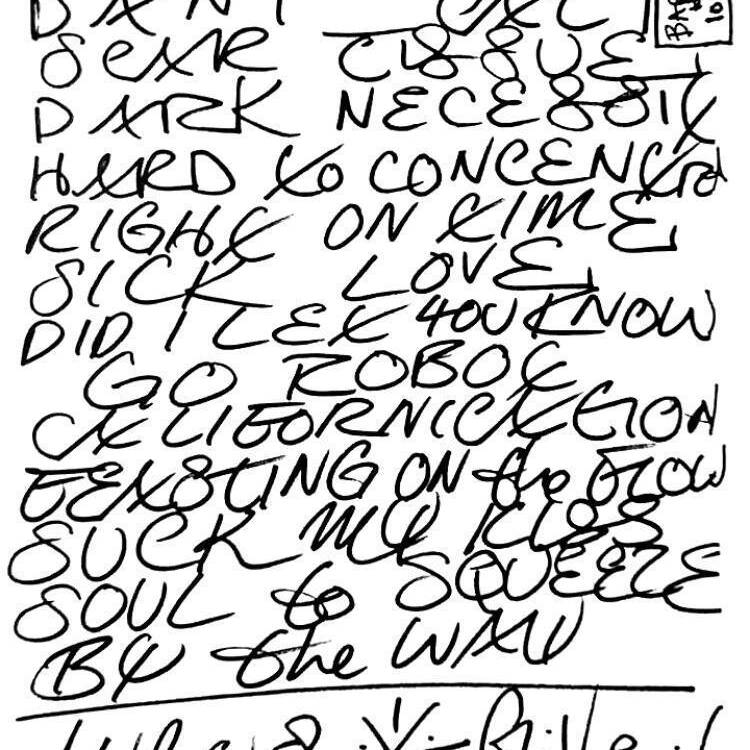 SCAR TISSUE
DARK NECESSITY
HARD to CONCENtRA
RIGHT ON TIME
SICK LOVE
DID I LET YOU KNOW
GO ROBOT
CALIFORNICATION
FEASTING ON the FLOW
SUCK MY KISS
SOUL to SQUEEZE
BY the WAY